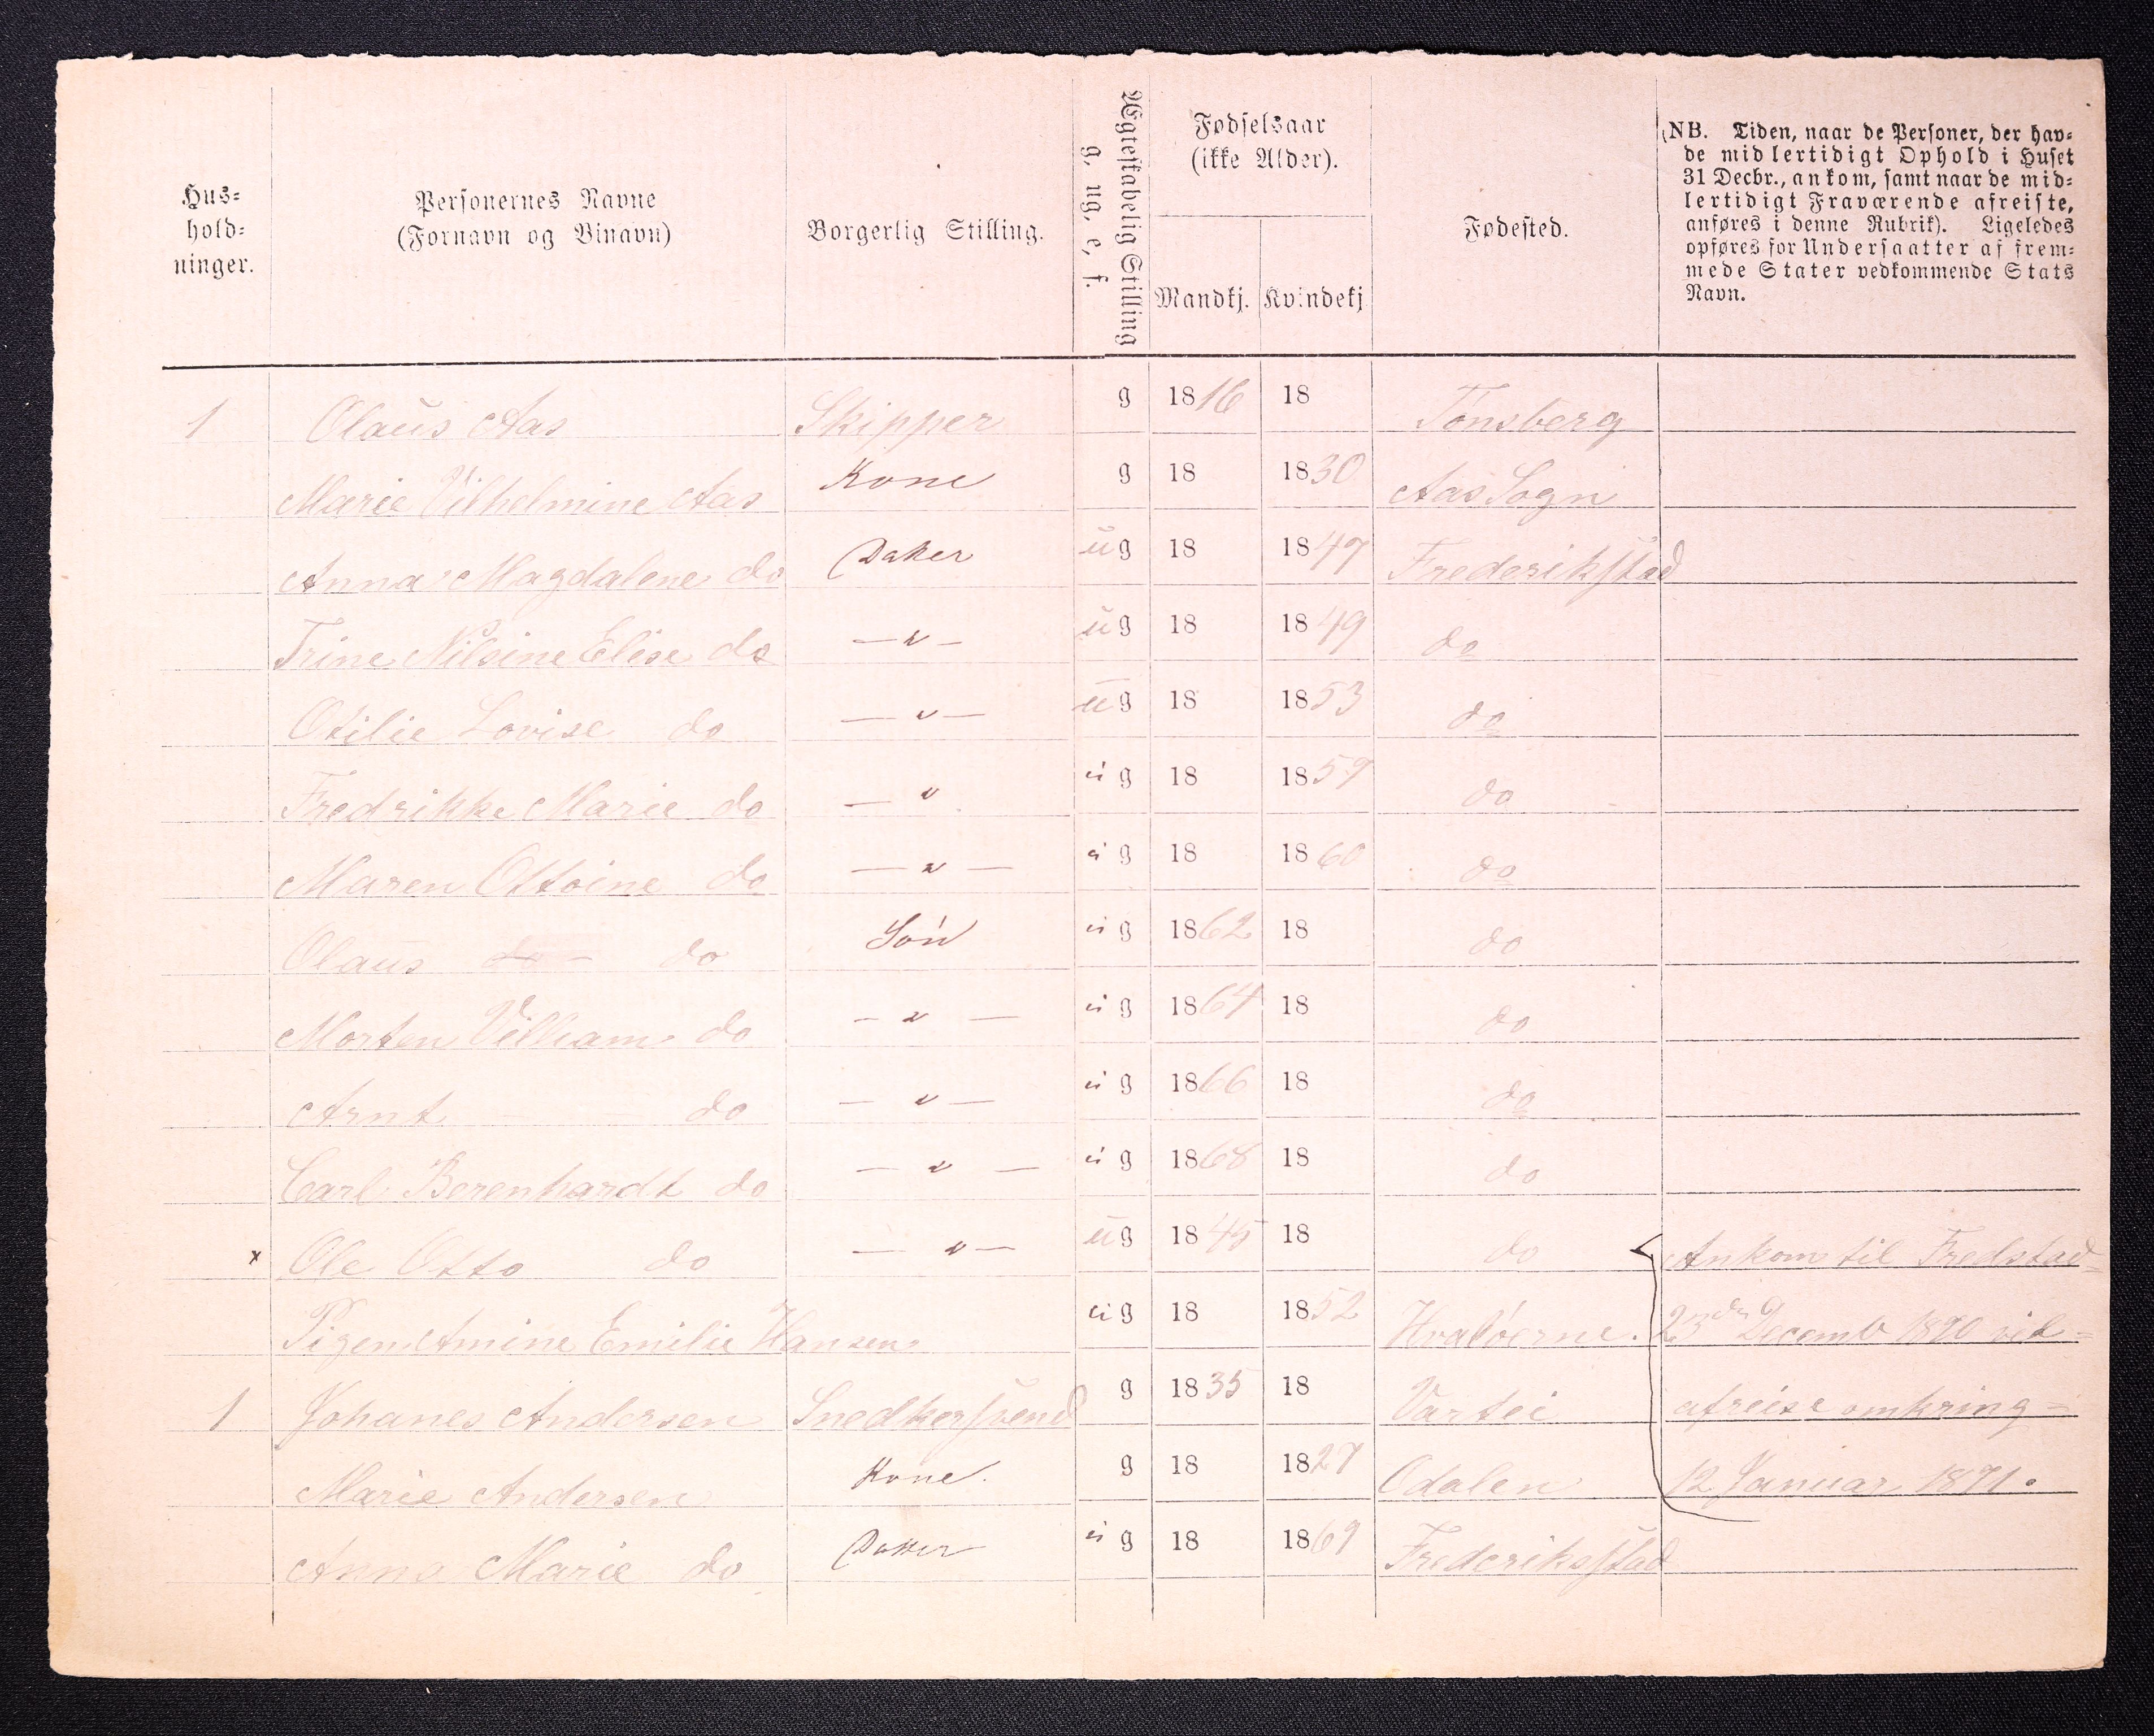 Hus=
hold=
ninger.
Personernes Navne
(Fornavn og Binavn)
Borgerlig Stilling.
Ægteskabelig Stilling
g, ug, e, f.
Fødselsaar
(ikke Alder).
Mandkj. Kvindekj
Fødested.
(NB. Tiden, naar de Personer, der hav=
de midlertidigt Ophold i Huset
31 Decbr., ankom, samt naar de mid=
lertidigt Fraværende afreiste,
anføres i denne Rubrik). Ligeledes
opføres for Undersaatter af frem=
mede Stater vedkommende Stats
Navn.
1 Olaus Aas Skipper g 1816 18 Tönsberg
Marie Vilhelmine Aas Kone g 18 1830 Aas Sogn
Anna Magdalene do Datter ug 18 1847 Frederikstad
Trine Nilsine Elise do — " — ug 18 1849 do
Otilie Lovise do — " — ug 18 1853 do
Fredrikke Marie do — " ug 18 1857 do
Maren Ottoine do — " — ug 18 1860 do
Olaus do Sön ug 1862 18 do
Morten Villiam do — " — ug 1864 18 do
Arnt do — " — ug 1866 18 do
Carl Berenhardt do — " — ug 1868 18 do
x Ole Otto do — " — ug 1845 18 do Ankom til Fredstad
Pigen Amine Emilie Hansen ug 18 1852 Hvalöerne. 23de Decemb 1870 vil
1 Johanes Andersen Snedkersvend g 1835 18 Vartei afreise omkring
Marie Andersen Kone. g 18 1827 Odalen 12 Januar 1871.
Anna Marie do Datter ug 18 1869 Frederiksstad